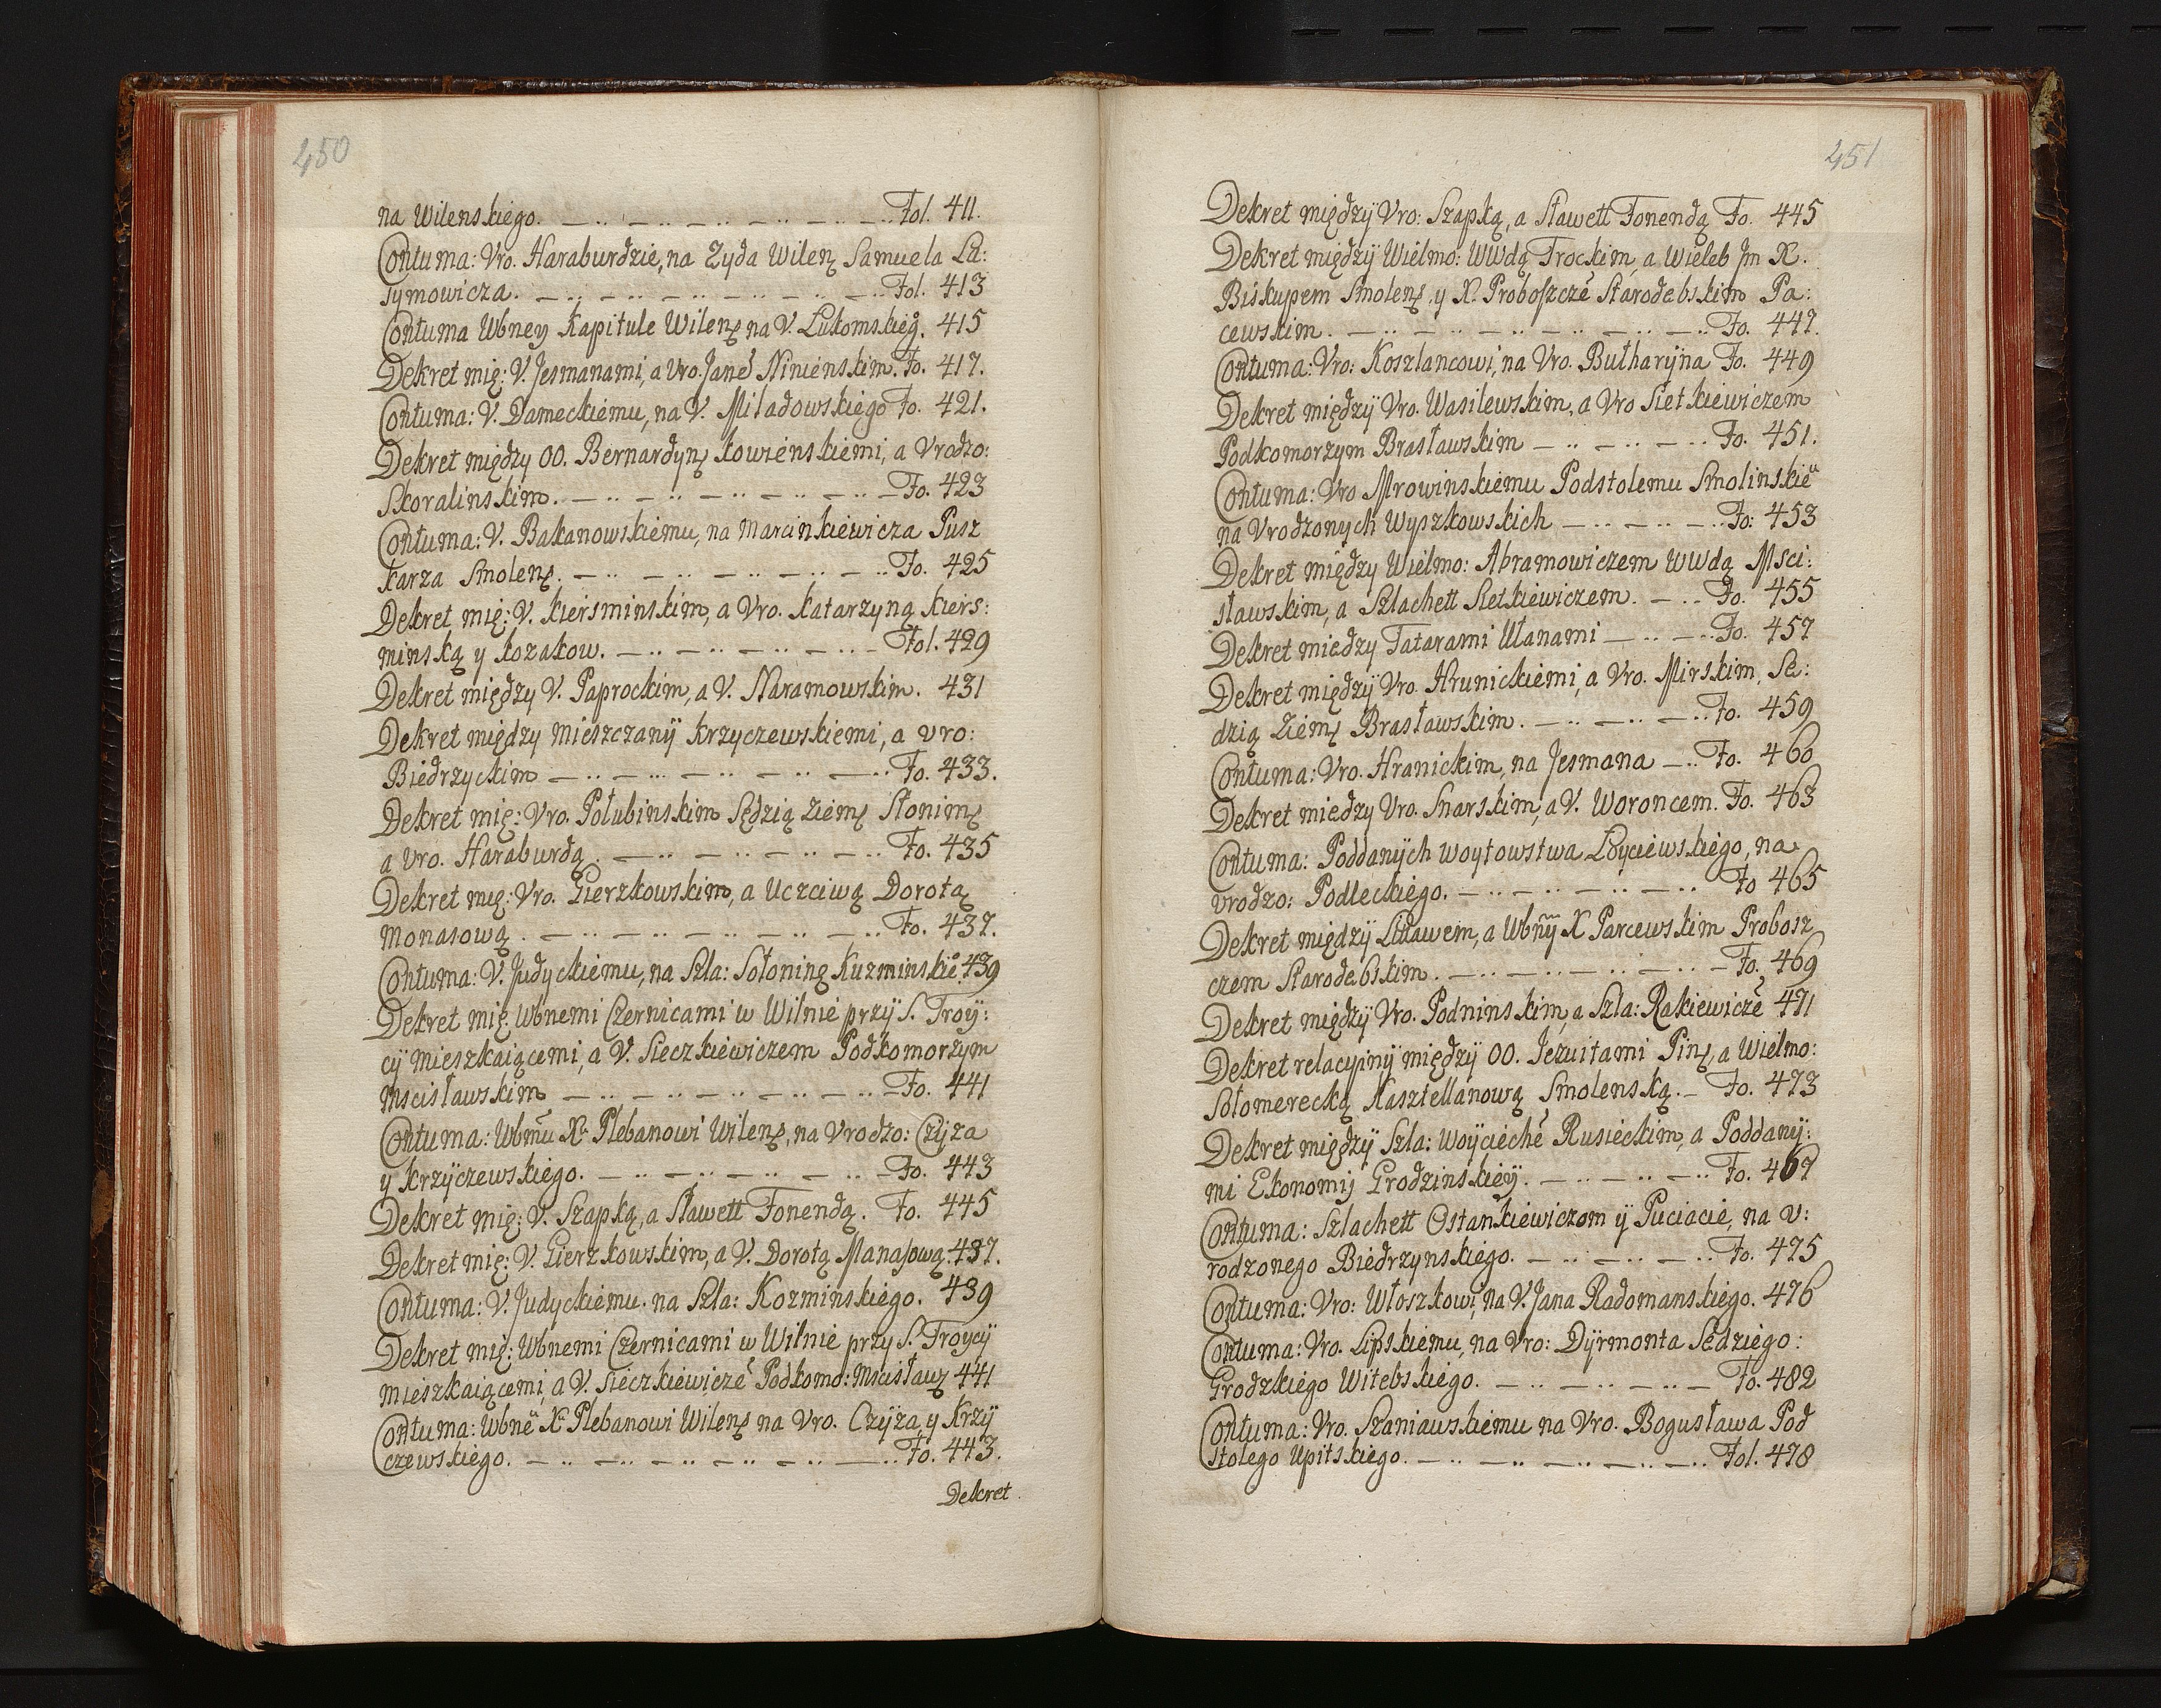 450
na Wilenskiego. Fol. 411.
Contuma: Vro. Haraburdzie, na Zyda Wilen Samuela La:
zymowicza. Fol. 413
Contuma Wbney Kapitule Wilen na V. Lukomskieg. 415
Dekret mię: V. Jesmanami, a Vro. Jané Niniénskim. Fo. 417.
Contuma: V. Dameckiemu, na V. Miladowskiego Fo. 421.
Dekret między OO. Bernardyn Kowiénskiemi, a Vrodzo:
Skoralinskim. Fo. 423
Contuma: V. Bakanowskiemu, na Marcinkiewicza Pusz
karza Smolen. Fo. 425
Dekret mię: V. Kiersminskim, a Vro. Katarzyną Kiers:
minską y Kozakow. Fol. 429
Dekret między V. Paprockim, a V. Naramowskim. 431
Dekret między Mieszczanÿ Krzyczewskiemi, a Vro:
Biedrzyckim Fo. 433.
Dekret mię: Vro. Połubinskim Sędzią Ziem Słonim
a Vro. Haraburdą. Fo. 435
Dekret mię: Vro. Gierzkowskim, a Uczciwą Dorotą
Monasową. Fo. 437.
Contuma: V. Judyckiemu, na Szla: Sołoninę Kuzminskiė. 439
Dekret mię. Wbnemi Czernicami w Wilnie przÿ S. Troÿ:
cÿ mieszkaiącemi, a V. Sieczkiewiczem Podkomorzym
Mscisławskim Fo. 441
Contuma: Wbmu X. Plebanowi Wilen, na Vrodzo: Czÿza
y Krzÿczewskiego. Fo. 443
Dekret mię: V. Szapką, a Sławett Fonendą. Fo. 445
Dekret mię: V. Gierzkowskim, a V. Dorotą Manasową. 437.
Contuma: V. Judyckiemu. na Szla: Kozminskiego. 439
Dekret mię: Wbnemi Czernicami w Wilnie przy S. Troycÿ
mieszkaiącemi, a V. Sieczkiewiczé Podkomo: Mscisław 441
Contuma: Wbne X. Plebanowi Wilen na Vro. Czÿza, y Krzÿ
czewskiego. Fo. 443.
Dekret.
451
Dekret międzÿ Vro: Szapką, a Sławett Fonendą Fo. 445
Dekret międzÿ Wielmo: WWdą Trockim, a Wieleb Jm X.
Biskupem Smolen, y X. Proboszczé Starodebskim Pa:
cewskim. Fo. 447.
Contuma: Vro: Koszlancowi, na Vro. Butharÿna Fo. 449
Dekret międzÿ Vro. Wasilewskim, a Vro Sietkiewiczem
Podkomorzym Brasławskim Fo. 451.
Contuma: Vro Mrowinskiemu Podstolemu Smolinskie
na Vrodzonych Wyszkowskich Fo: 453
Dekret między Wielmo: Abramowiczem WWdą Msci:
sławskim, a Szlachett Sietkiewiczem. Fo. 455
Dekret miedzy Tatarami Ułanami Fo. 457
Dekret międzÿ Vro. Hrunickiemi, a Vro. Mirskim, Se:
dzią Ziem Brasławskim. Fo. 459
Contuma: Vro. Hranickim, na Jesmana Fo. 460
Dekret miedzy Vro. Snarskim, a V. Woroncem. Fo. 463
Contuma: Poddanÿch Woytowstwa Łoyciewskiego, na
Vrodzo: Podleckiego. Fo 465
Dekret międzÿ Litawem, a Wbnÿ X Parcewskim Probosz
czem Starodebskim. Fo. 469
Dekret międzÿ Vro. Podninskim, a Szla: Rakiewiczé 471
Dekret relacyinÿ międzÿ OO. Jezuitami Pin, a Wielmo:
Sołomerecką Kasztellanową Smolenską. Fo. 473
Dekret międzÿ Szla: Woÿcieché Rusieckim, a Poddanÿ:
mi Ekonomij Grodzinskieÿ. Fo. 467
Contuma: Szlachett Ostankiewiczom ÿ Puciacie, na V:
rodzonego Biedrzynskiego. Fo. 475
Contuma: Vro: Włoszkowi, na V. Jana Radomanskiego. 476
Contuma: Vro. Lipskiemu, na Vro: Dÿrmonta Sedziego:
Grodzkiego Witebskiego. Fo. 482
Contuma: Vro. Szaniawskiemu na Vro. Bogusława Pod
stolego Upitskiego. Fol. 478